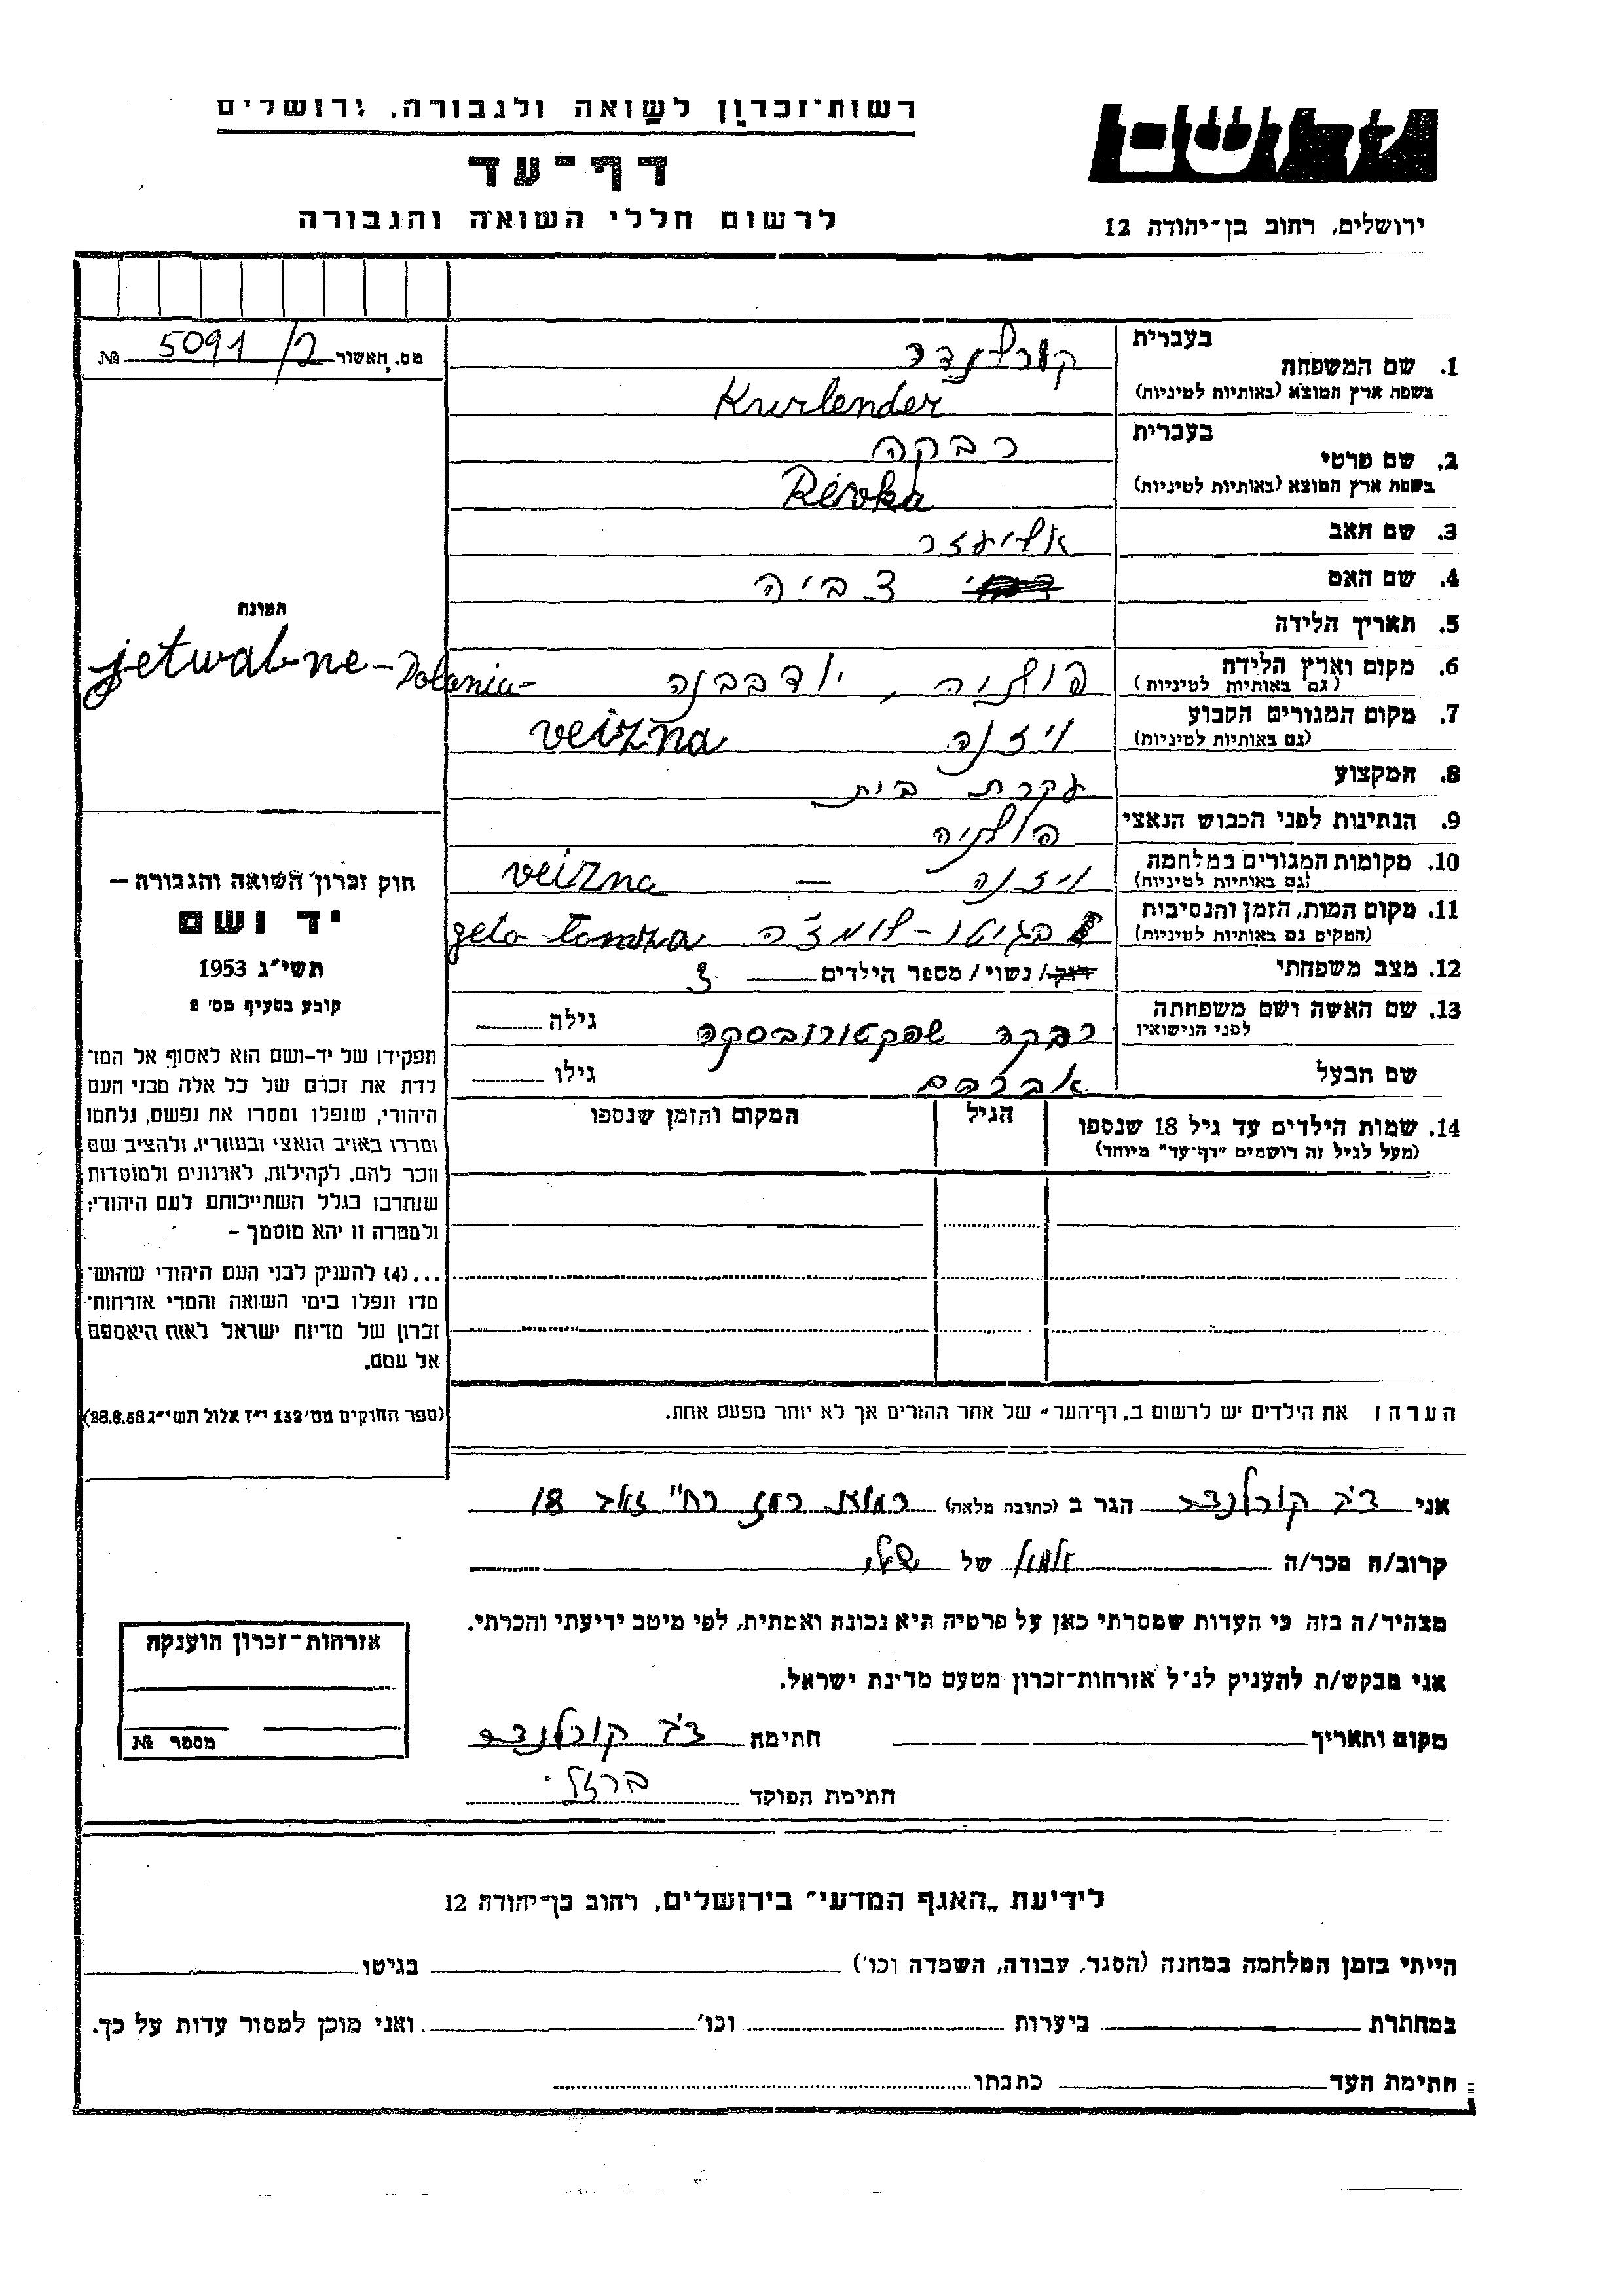 רשות־זכרון לשואה ולגבורה, ירושלים
דף־עד
לרשום חללי השואה והגבורה
ירושלים, רחוב בן־יהודה 12
מס. האשור 5091/2 №
בעברית קורלנדר
1. שם המשפחה
בשפת ארץ המוצא (באותיות לטיניות) Kurlender
בעברית רבקה
2. שם פרטי
בשפת ארץ המוצא (באותיות לטיניות) Rivka
3. שם האב אליעזר
4. שם האם צביה
5. תאריך הלידה
6. מקום וארץ הלידה פולניה, ידבבנה
(גם באותיות לטיניות) jetwabne - Polania -
7. מקום המגורים הקבוע ויזנה veizna
(גם באותיות לטיניות)
8. המקצוע עקרת בית
9. הנתינות לפני הכבוש הנאצי פולניה
10. מקומות המגורים במלחמה ויזנה — veizna
(גם באותיות לטיניות)
11. מקום המות, הזמן והנסיבות בגיטו - לומזה geto - Lomza
(המקום גם באותיות לטיניות)
12. מצב משפחתי רוק/ נשוי/ מספר הילדים 3
13. שם האשה ושם משפחתה רבקה שפקטורובסקה גילה
לפני הנישואין
שם הבעל אברהם גילו
14. שמות הילדים עד גיל 18 שנספו הגיל המקום והזמן שנספו
(מעל לגיל זה רושמים "דף־עד" מיוחד)
הערה: את הילדים יש לרשום ב„דף־העד" של אחד ההורים אך לא יותר מפעם אחת.
התמונה
חוק זכרון השואה והגבורה —
יד ושם
תשי"ג 1953
קובע בסעיף מס' 2
תפקידו של יד-ושם הוא לאסוף אל המו־
לדת את זכרם של כל אלה מבני העם
היהודי, שנפלו ומסרו את נפשם, נלחמו
ומרדו באויב הנאצי ובעוזריו, ולהציב שם
וזכר להם, לקהילות, לארגונים ולמוסדות
שנחרבו בגלל השתייכותם לעם היהודי;
ולמטרה זו יהא מוסמך —
...(4) להעניק לבני העם היהודי שהוש־
מדו ונפלו בימי השואה והמרי אזרחות־
זכרון של מדינת ישראל לאות היאספם
אל עמם.
(ספר החוקים מס' 132 י"ז אלול תשי"ג 28.8.53)
אני דב קורלנדר הגר ב (כתובת מלאה) רמת רמז רח' 18
קרוב/ה מכר/ה של
מצהיר/ה בזה כי העדות שמסרתי כאן על פרטיה היא נכונה ואמתית, לפי מיטב ידיעתי והכרתי.
אני מבקש/ת להעניק לנ"ל אזרחות־זכרון מטעם מדינת ישראל.
מקום ותאריך חתימה דב קורלנדר
חתימת הפוקד ברזלי
אזרחות־זכרון הוענקה
מספר №
לידיעת „האגף המדעי" בירושלים, רחוב בן־יהודה 12
הייתי בזמן המלחמה במחנה (הסגר, עבודה, השמדה וכו') בגיטו
במחתרת ביערות וכו' ואני מוכן למסור עדות על כך.
חתימת העד כתבתו